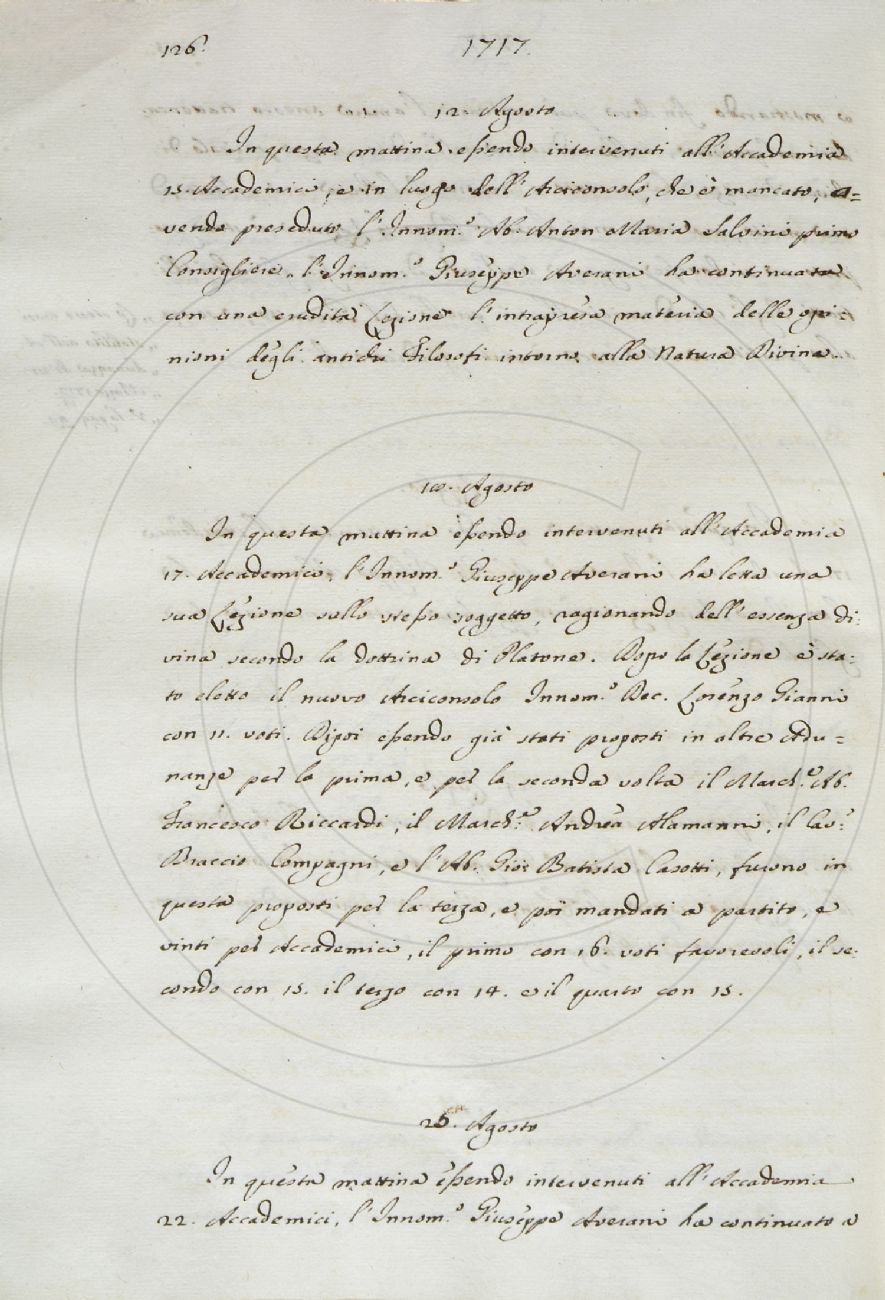 126.
1717.
12. Agosto
In questa mattina essendo intervenuti all'Accademia
15. Accademici, e in luogo dell'Arciconsolo, che è mancato, a=
vendo preseduto l'Innom.º Ab. Anton Maria Salvini primo
Consigliere, l'Innom.º Giuseppe Averani ha continuato
con una erudita Lezione l'intrapresa materia delle opi=
nioni degli antichi Filosofi intorno alla Natura Divina.
Agosto
In questa mattina essendo intervenuti all'Accademia
17. Accademici, l'Innom.º Giuseppe Averani ha letta una
sua Lezione sullo stesso soggetto, ragionando dell'essenza di=
vina secondo la dottrina di Platone. Dopo la Lezione è sta=
to eletto il nuovo Arciconsolo Innom.º Dec. Lorenzo Gianni
con 11. voti. Dipoi essendo già stati proposti in altre Adu=
nanze per la prima, e per la seconda volta il March.e Ab.
Francesco Riccardi, il March.e Andrea Alamanni, il Cav.e
Braccio Compagni, e l'Ab. Gio: Batista Casotti, furono in
questa proposti per la terza, e poi mandati a partito, e
vinti per Accademici, il primo con 16. voti favorevoli, il se=
condo con 15. il terzo con 14. e il quarto con 15.
26. Agosto
In questa mattina essendo intervenuti all'Accademia
22. Accademici, l'Innom.º Giuseppe Averani ha continuato a